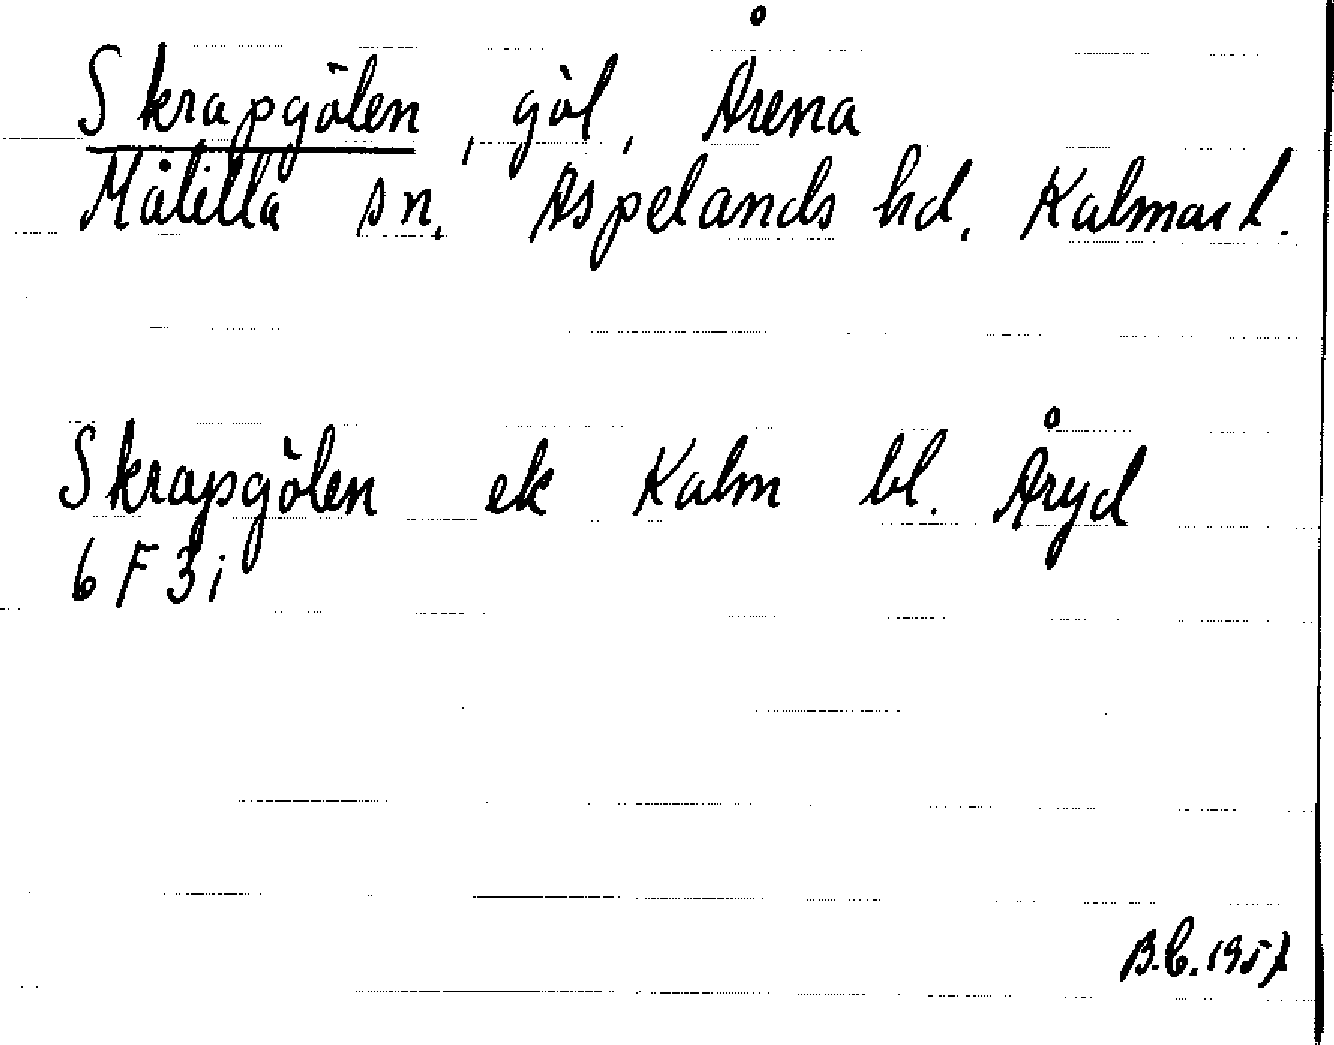 Skrapgölen, göl, Årena
Målilla sn. Aspelands hd. Kalmar l.
Skrapgölen ek Kalm bl. Åryd
6 F 3 i
B.C. 1957